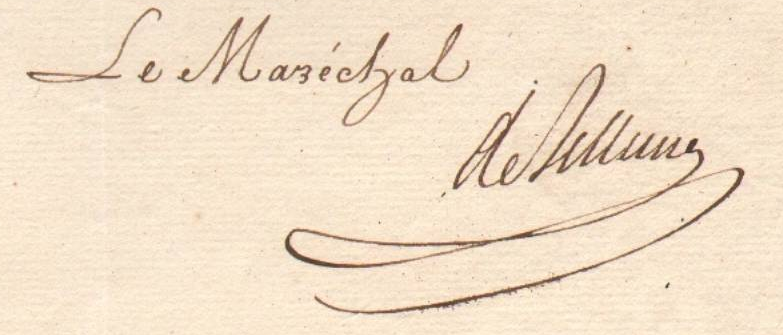 Le Maréchal
de Bellune